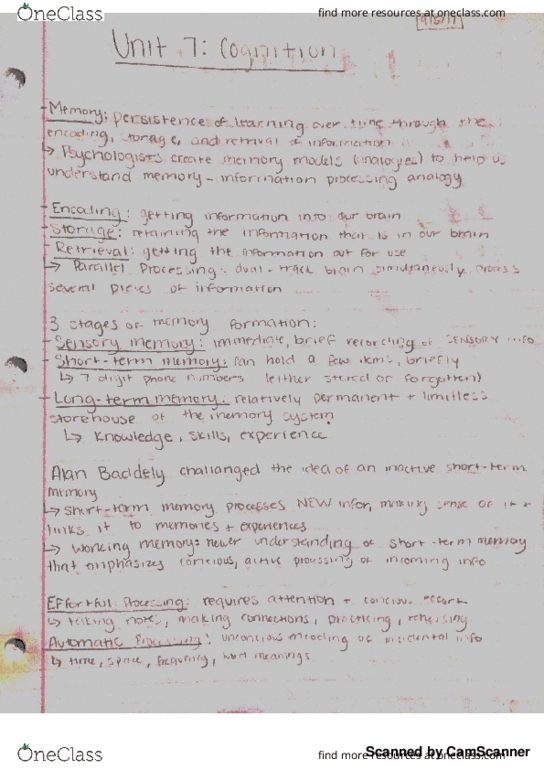 OneClass
find more resources at oneclass.com
9/15/17
Unit 7: Cognition
- Memory: persistence of learning over time through the
encoding, storage, and retrival of information
↳ Psychologists create memory models (analogies) to help us
understand memory - information processing analogy
- Encoding: getting information into our brain
- Storage: retaining the information that is in our brain
- Retrieval: getting the information out for use
↳ Parallel Processing: dual-track brain simultaneously process
several pieces of information
3 stages of memory formation:
- Sensory memory: immediate, brief recording of sensory info
- Short-term memory: can hold a few items, briefly
↳ 7 digit phone numbers (either stored or forgotten)
- Long-term memory: relatively permanent + limitless
storehouse of the memory system
↳ Knowledge, skills, experience
Alan Baddely challanged the idea of an inactive short-term
memory
↳ short-term memory processes NEW infor, making sense of it +
links it to memories + experiences
↳ Working memory: newer understanding of short-term memory
that emphasizes concious, active processing of incoming info
Effortful Processing: requires attention + concious effort
↳ taking notes, making connections, practicing, rehersing
Automatic Processing: unconcious encoding of incidental info
↳ time, space, frequency, word meanings
OneClass
find more resources at oneclass.com
Scanned by CamScanner